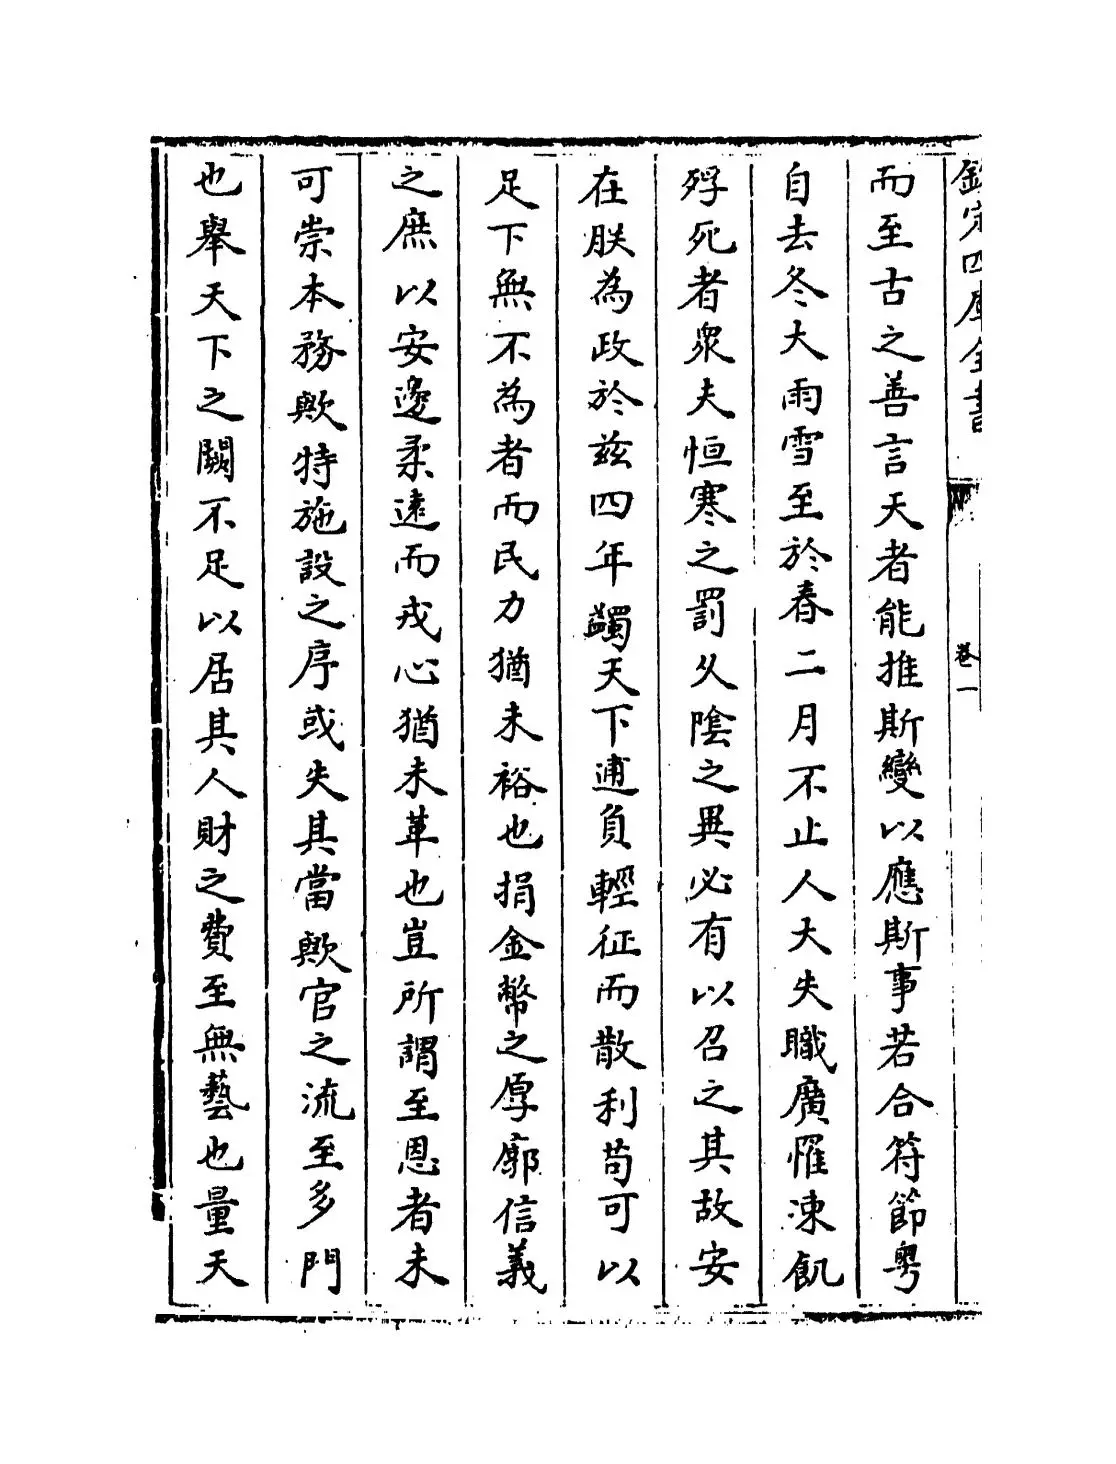 欽定四庫全書
卷一
而至古之善言天者能推斯變以應斯事若合符節粤
自去冬大雨雪至於春二月不止人大失職廣罹凍飢
殍死者衆夫恒寒之罰从陰之異必有以召之其故安
在朕為政於兹四年蠲天下逋負輕征而散利苟可以
足下無不為者而民力猶未裕也捐金幣之厚廓信義
之庶以安邊柔逺而戎心猶未革也豈所謂至恩者未
可崇本務歟特施設之序或失其當歟官之流至多門
也舉天下之闕不足以居其人財之費至無藝也量天